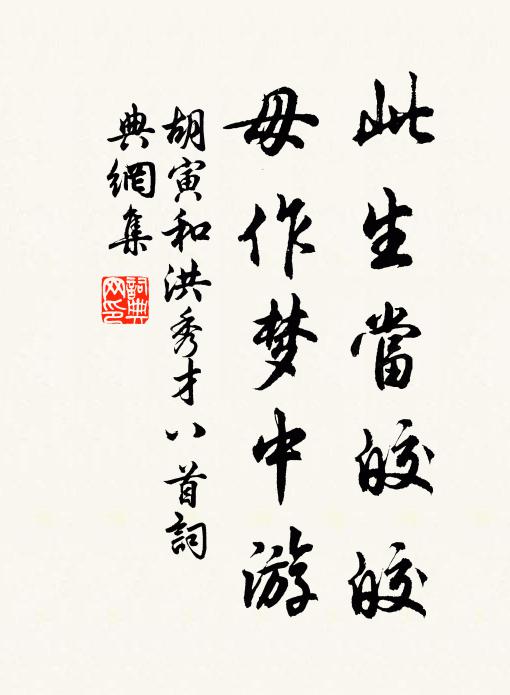 此生當皎皎
毋作梦中游
胡寅和洪秀才八首詞
典網集
詞典
网印